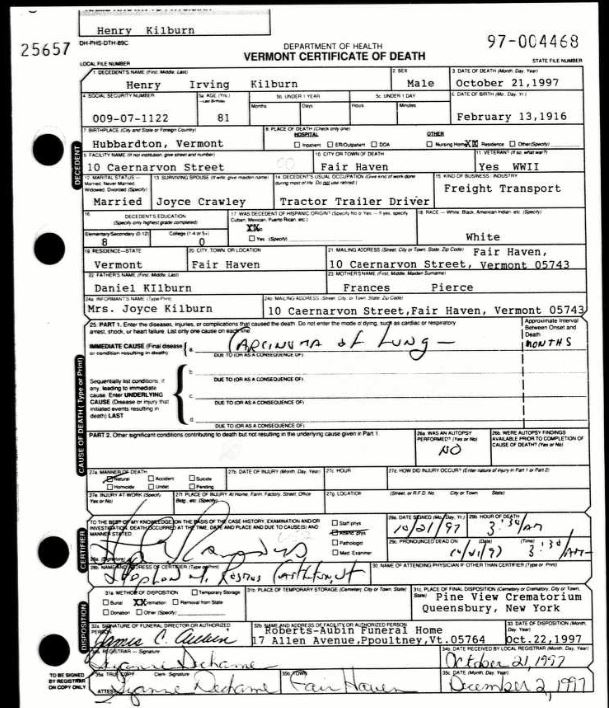 Henry Kilburn
25657
DH-PHS-DTH-89C
DEPARTMENT OF HEALTH
97-004468
LOCAL FILE NUMBER
VERMONT CERTIFICATE OF DEATH
STATE FILE NUMBER
1. DECEDENT'S NAME (First, Middle, Last) 2. SEX 3. DATE OF DEATH (Month, Day, Year)
Henry Irving Kilburn Male October 21,1997
4. SOCIAL SECURITY NUMBER 5a. AGE (Yrs.) 5b. UNDER 1 YEAR 5c. UNDER 1 DAY 6. DATE OF BIRTH (Mo., Day, Yr.)
Months Days Hours Minutes
009-07-1122 81 February 13,1916
7. BIRTHPLACE (City and State or Foreign Country) 8. PLACE OF DEATH (Check only one)
HOSPITAL OTHER
Hubbardton, Vermont Inpatient ER/Outpatient DOA Nursing Home XX Residence Other (Specify)
9. FACILITY NAME (If not institution, give street and number) 10. CITY OR TOWN OF DEATH 11. VETERAN? (If so, what war?)
10 Caernarvon Street Fair Haven Yes WWII
12. MARITAL STATUS — Married, Never Married, Widowed, Divorced (Specify) 13. SURVIVING SPOUSE (If wife, give maiden name) 14. DECEDENT'S USUAL OCCUPATION (Give kind of work done during most of life. Do not use retired.) 15. KIND OF BUSINESS / INDUSTRY
Married Joyce Crawley Tractor Trailer Driver Freight Transport
16. DECEDENT'S EDUCATION 17. WAS DECEDENT OF HISPANIC ORIGIN? 18. RACE — White, Black, American Indian, etc. (Specify)
(Specify only highest grade completed)
Elementary/Secondary (0-12) College (1-4 or 5+) Yes (Specify)
8 0 White
19. RESIDENCE—STATE 20. CITY, TOWN OR LOCATION 21. MAILING ADDRESS (Street, City or Town, State, Zip Code) Fair Haven,
Vermont Fair Haven 10 Caernarvon Street, Vermont 05743
22. FATHER'S NAME (First, Middle, Last) 23. MOTHER'S NAME (First, Middle, Maiden Surname)
Daniel Kilburn Frances Pierce
24a. INFORMANT'S NAME (Type/Print) 24b. MAILING ADDRESS (Street, City, or Town, State, Zip Code)
Mrs. Joyce Kilburn 10 Caernarvon Street,Fair Haven, Vermont 05743
25. PART 1. Enter the diseases, injuries, or complications that caused the death. Do not enter the mode of dying, such as cardiac or respiratory arrest, shock, or heart failure. List only one cause on each line.
Approximate Interval Between Onset and Death
IMMEDIATE CAUSE (Final disease or condition resulting in death) a. Carcinoma of Lung — MONTHS
DUE TO (OR AS A CONSEQUENCE OF):
b.
DUE TO (OR AS A CONSEQUENCE OF):
Sequentially list conditions, if any, leading to immediate cause. Enter UNDERLYING CAUSE (Disease or injury that initiated events resulting in death) LAST
c.
DUE TO (OR AS A CONSEQUENCE OF):
d.
PART 2. Other significant conditions contributing to death but not resulting in the underlying cause given in Part 1.
26a. WAS AN AUTOPSY PERFORMED? (Yes or No) 26b. WERE AUTOPSY FINDINGS AVAILABLE PRIOR TO COMPLETION OF CAUSE OF DEATH? (Yes or No)
NO
27a. MANNER OF DEATH 27b. DATE OF INJURY (Month, Day, Year) 27c. HOUR 27d. HOW DID INJURY OCCUR? (Enter nature of injury in Part 1 or Part 2)
Natural Accident Suicide
Homicide Under Pending
27e. INJURY AT WORK (Specify Yes or No) 27f. PLACE OF INJURY At Home, Farm, Factory, Street, Office Bldg., etc. (Specify) 27g. LOCATION (Street, or R.F.D. No. City or Town State)
28a. (Signature)
Staff phys
Attend. phys
Pathologist
Med. Examiner
29a. DATE SIGNED (Mo., Day, Yr.) 29b. HOUR OF DEATH
10/21/97 3:30 AM
29c. PRONOUNCED DEAD ON (Date) (Time)
10/21/97 3:30 AM
28b. NAME AND ADDRESS OF CERTIFIER (Type or Print) 30. NAME OF ATTENDING PHYSICIAN IF OTHER THAN CERTIFIER
31a. METHOD OF DISPOSITION Temporary Storage 31b. PLACE OF TEMPORARY STORAGE (Cemetery, City or Town, State) 31c. PLACE OF FINAL DISPOSITION (Cemetery or Crematory, City or Town, State)
Burial XX Cremation Removal from State Pine View Crematorium
Donation Other (Specify) Queensbury, New York
32a. SIGNATURE OF FUNERAL DIRECTOR OR AUTHORIZED PERSON 32b. NAME AND ADDRESS OF FACILITY OR AUTHORIZED PERSON 33. DATE OF DISPOSITION (Month, Day, Year)
Roberts-Aubin Funeral Home
James C. Aubin 17 Allen Avenue,Ppoultney,Vt.05764 Oct.22,1997
34a. REGISTRAR — Signature 34b. DATE RECEIVED BY LOCAL REGISTRAR
October 21, 1997
TO BE SIGNED BY REGISTRAR ON COPY ONLY
35a. TRUE COPY Clerk - Signature 35b. TOWN 35c. DATE
ATTEST Fair Haven December 2, 1997
DECEDENT
CAUSE OF DEATH (Type or Print)
CERTIFIER
DISPOSITION